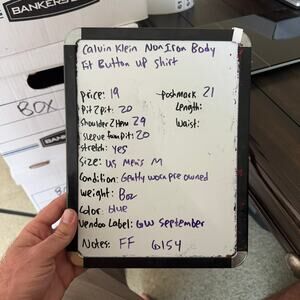 BANKERS
BOX
Calvin Klein Non Iron Body
Fit Button up shirt
price: 19 postmark 21
Pit 2 pit: 20 Length:
Shoulder 2 Hem 29 Waist:
Sleeve from Pit: 20
stretch: yes
Size: US Men's M
Condition: Gently worn pre owned
weight: 8oz
Color: blue
Vendoo Label: GW September
Notes: FF 6154